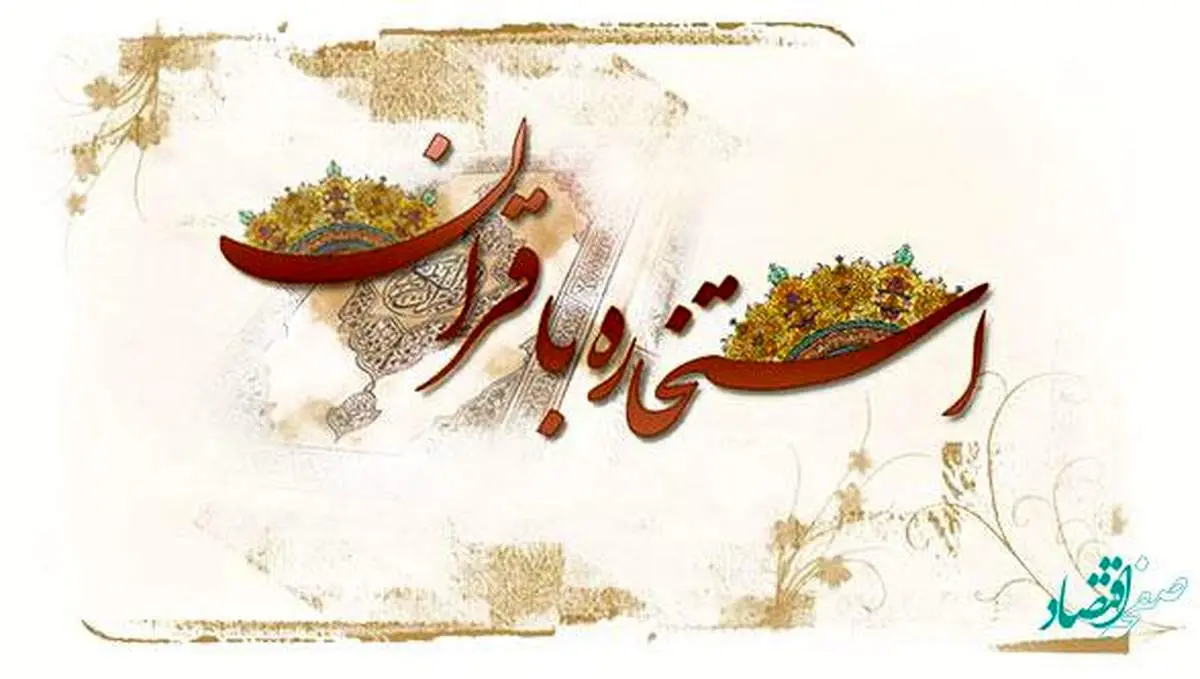 استخاره با قرآن
صفحه اقتصاد